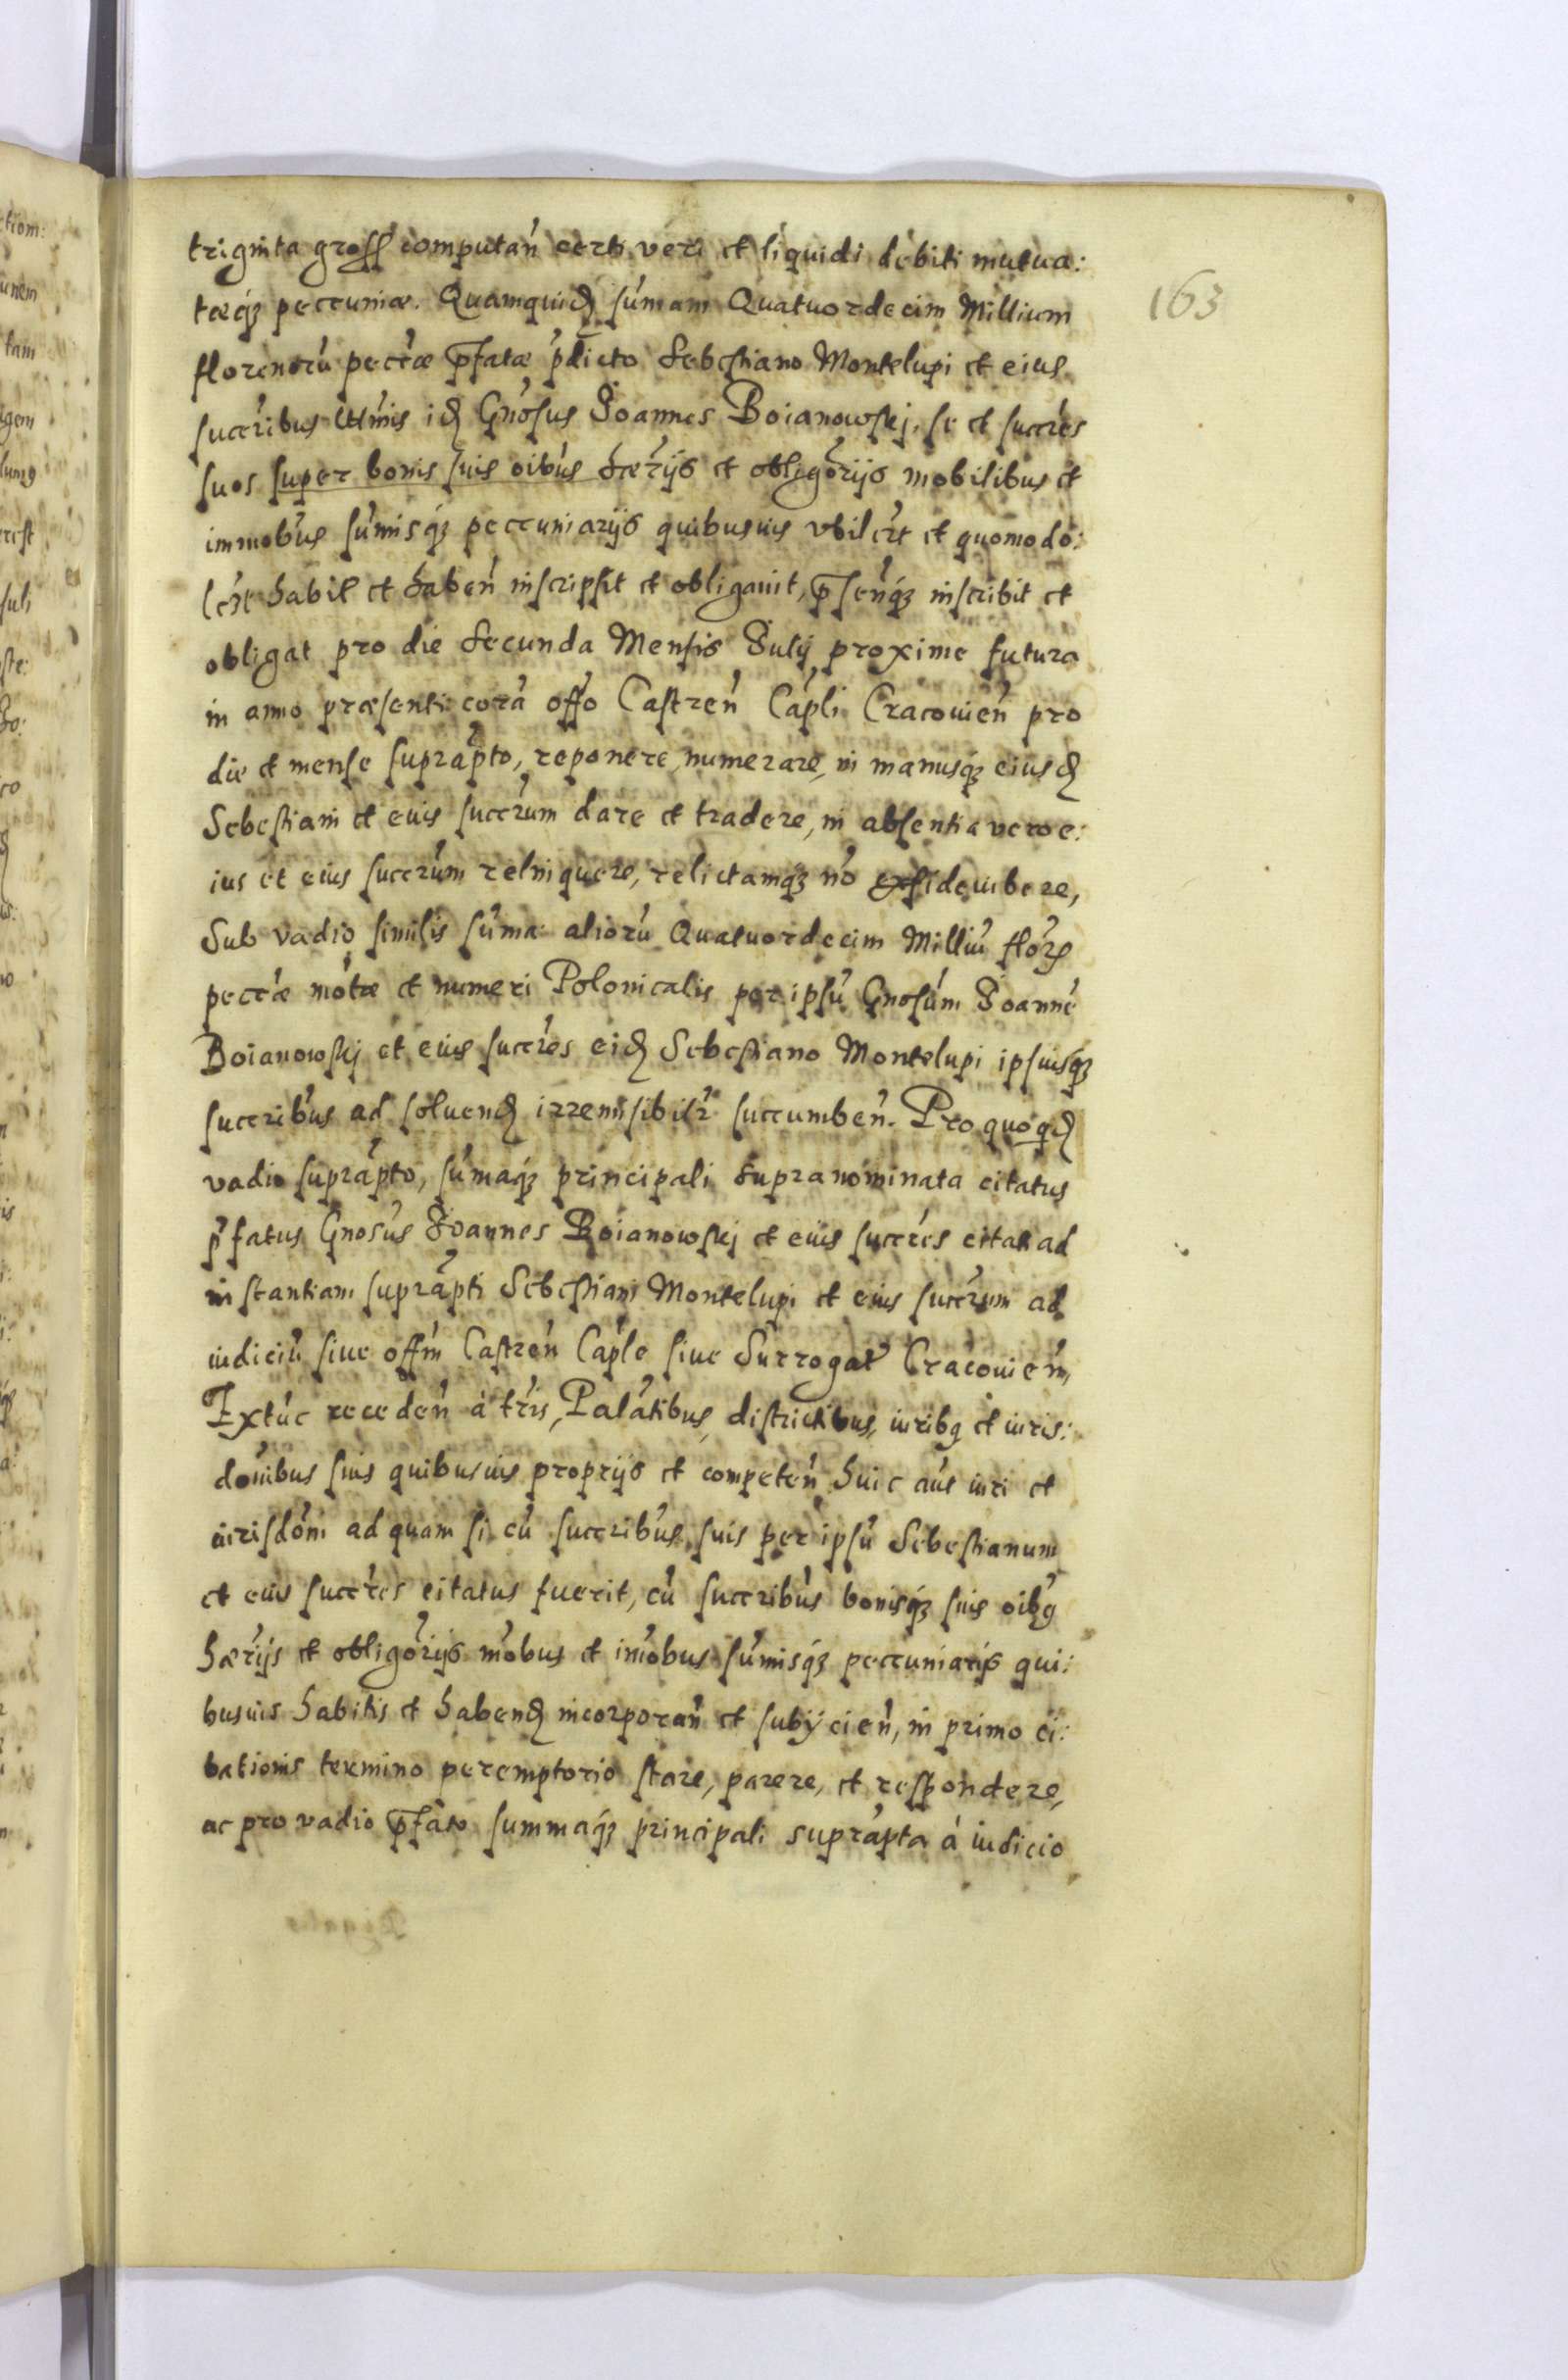 triginta gross computań certi veri et liquidi debiti mutua:
tæq́ꝫ peccuniæ. Quamquid sum̃am Quatuordecim Millium
florenorũ pecc̃æ p̃fatæ p̃dicto Sebestiano Montelupi et eius
succr̃ibus l̃ttmis id Gñosus Joannes Boianowskj, se et succr̃es
suos super bonis suis oĩbus hær̃ijs et obligor̃ijs mobilibus et
immob̃us sum̃isq́ꝫ peccuniarijs quibusuis vbilc̃t et quomodo:
lc̃t habit et habeń inscripsit et obligauit, p̃señq́ꝫ inscribit et
obligat pro die Secunda Mensis Julij proxime futura
in anno præsenti corã offo Castreń Cap̃li Cracouień pro
die et mense suprap̃to, reponere, numerare, in manusq́ꝫ eiusd
Sebestiani et euis succr̃um dare et tradere, in absentia vero e:
ius et eius succr̃um relinquere, relictamq́ꝫ nõ exfidejubere,
Sub vadio similis sum̃a aliorũ Quatuordecim Milliũ flor̃
pecc̃æ mõtæ et numeri Polonicalis per ipsũ Gnosũm Joannẽ
Boianowskj et eius succr̃es eid Sebestiano Montelupi ipsiusq́ꝫ
succribũs ad soluend irremisibilr̃ succumbeń. Pro quoqd
vadio suprap̃to, sum̃aq́ꝫ principali supranominata citatus
p̃fatus Gnosũs Joannes Boianowskj et euis succr̃es citat ad
instantiam suprap̃ti Sebestiani Montelupi et eius succr̃um ad
iudiciũ siue offm̃ Castreń Cap̃le siue Surrogat̃ Cracouień,
Extũc receden̄ à tr̃is, Palãtibus, districtibus, iuribq et iuris:
donĩbus suis quibusuis proprijs et competeń huic aũt iuri et
iurisdõni ad quam si cũ succribũs suis per ipsũ Sebestianum
et euis succr̃es citatus fuerit, cũ succribũs bonisq́ꝫ suis oĩbq
hær̃ijs et obligor̃ijs mõbus et im̃obus sum̃isq́ꝫ peccuniarijs qui:
busuis habitis et habend incorporań et subijcień, in primo ci:
tationis termino peremptorio stare, parere, et respondere,
ac pro vadio p̃fato summaq́ꝫ principali suprap̃ta à iudicio
163